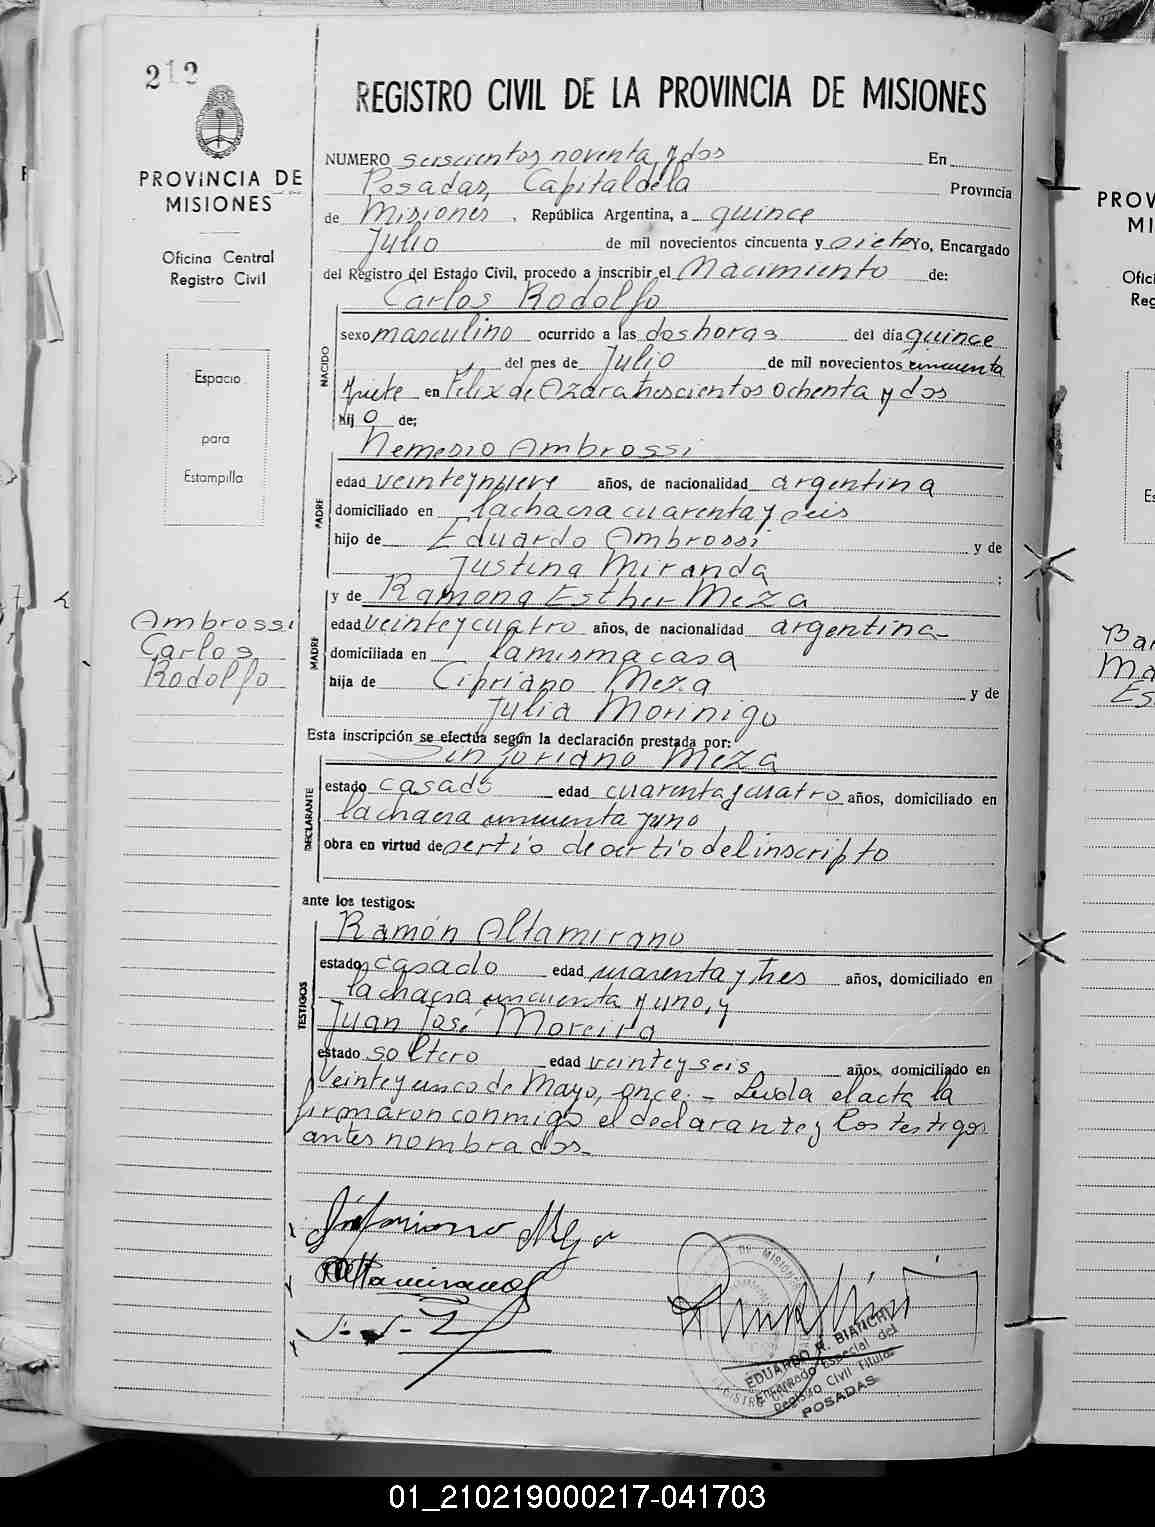 212
REGISTRO CIVIL DE LA PROVINCIA DE MISIONES
PROVINCIA DE
MISIONES
Oficina Central
Registro Civil
Espacio
para
Estampilla
Ambrossi
Carlos
Rodolfo
NUMERO seiscientos noventa y dos En
Posadas, Capital de la Provincia
de Misiones, República Argentina, a quince
Julio de mil novecientos cincuenta y siete Yo, Encargado
del Registro del Estado Civil, procedo a inscribir el Nacimiento de:
Carlos Rodolfo
NACIDO
sexo masculino ocurrido a las dos horas del día quince
del mes de Julio de mil novecientos cincuenta
y siete en Félix de Azara trescientos ochenta y dos
hijo de;
Nemesio Ambrossi
PADRE
edad veinte y nueve años, de nacionalidad argentina
domiciliado en la chacra cuarenta y seis
hijo de Eduardo Ambrossi y de
Justina Miranda ;
y de Ramona Esther Meza
MADRE
edad veinte y cuatro años, de nacionalidad argentina
domiciliada en la misma casa
hija de Cipriano Meza y de
Julia Morinigo
Esta inscripción se efectúa según la declaración prestada por:
Sinforiano Meza
DECLARANTE
estado casado edad cuarenta y cuatro años, domiciliado en
la chacra cincuenta y uno,
obra en virtud de ser tío de ser tío del inscripto
ante los testigos:
Ramón Altamirano
TESTIGOS
estado casado edad cuarenta y tres años, domiciliado en
la chacra cincuenta y uno, y
Juan José Moreira
estado soltero edad veinte y seis años, domiciliado en
Veinte y cinco de Mayo, once.- Leída el acta la
firmaron conmigo el declarante y los testigos
antes nombrados.-
Sinforiano Meza
Altamirano
EDUARDO R. BIANCHI
Encargado Especial del
Registro Civil Titular
POSADAS
PROV
MI
Ofici
Reg
Es
Bar
Ma
Es
01_210219000217-041703